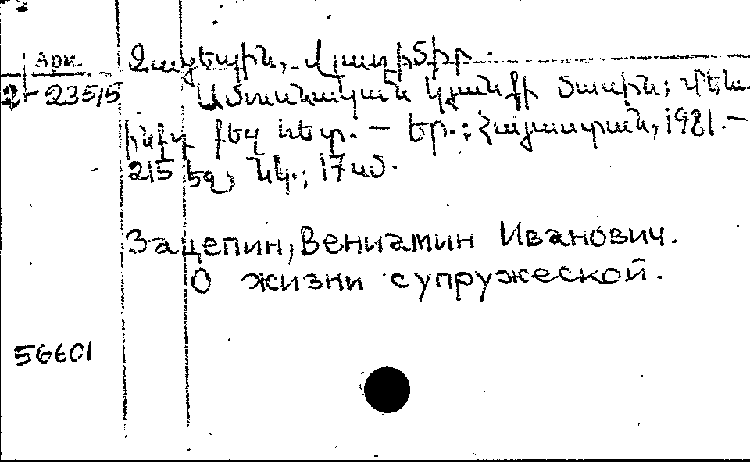 Арм.
2-23515
Զացեպին, Վլադիմիր.
Ամուսնական կյանքի մասին; Մենա-
խինդ քեզ հետ. — Եր.: Հայաստան, 1981.—
215 էջ, նկ.; 17 սմ.
Зацепин, Вениамин Иванович.
О жизни супружеской.
56601